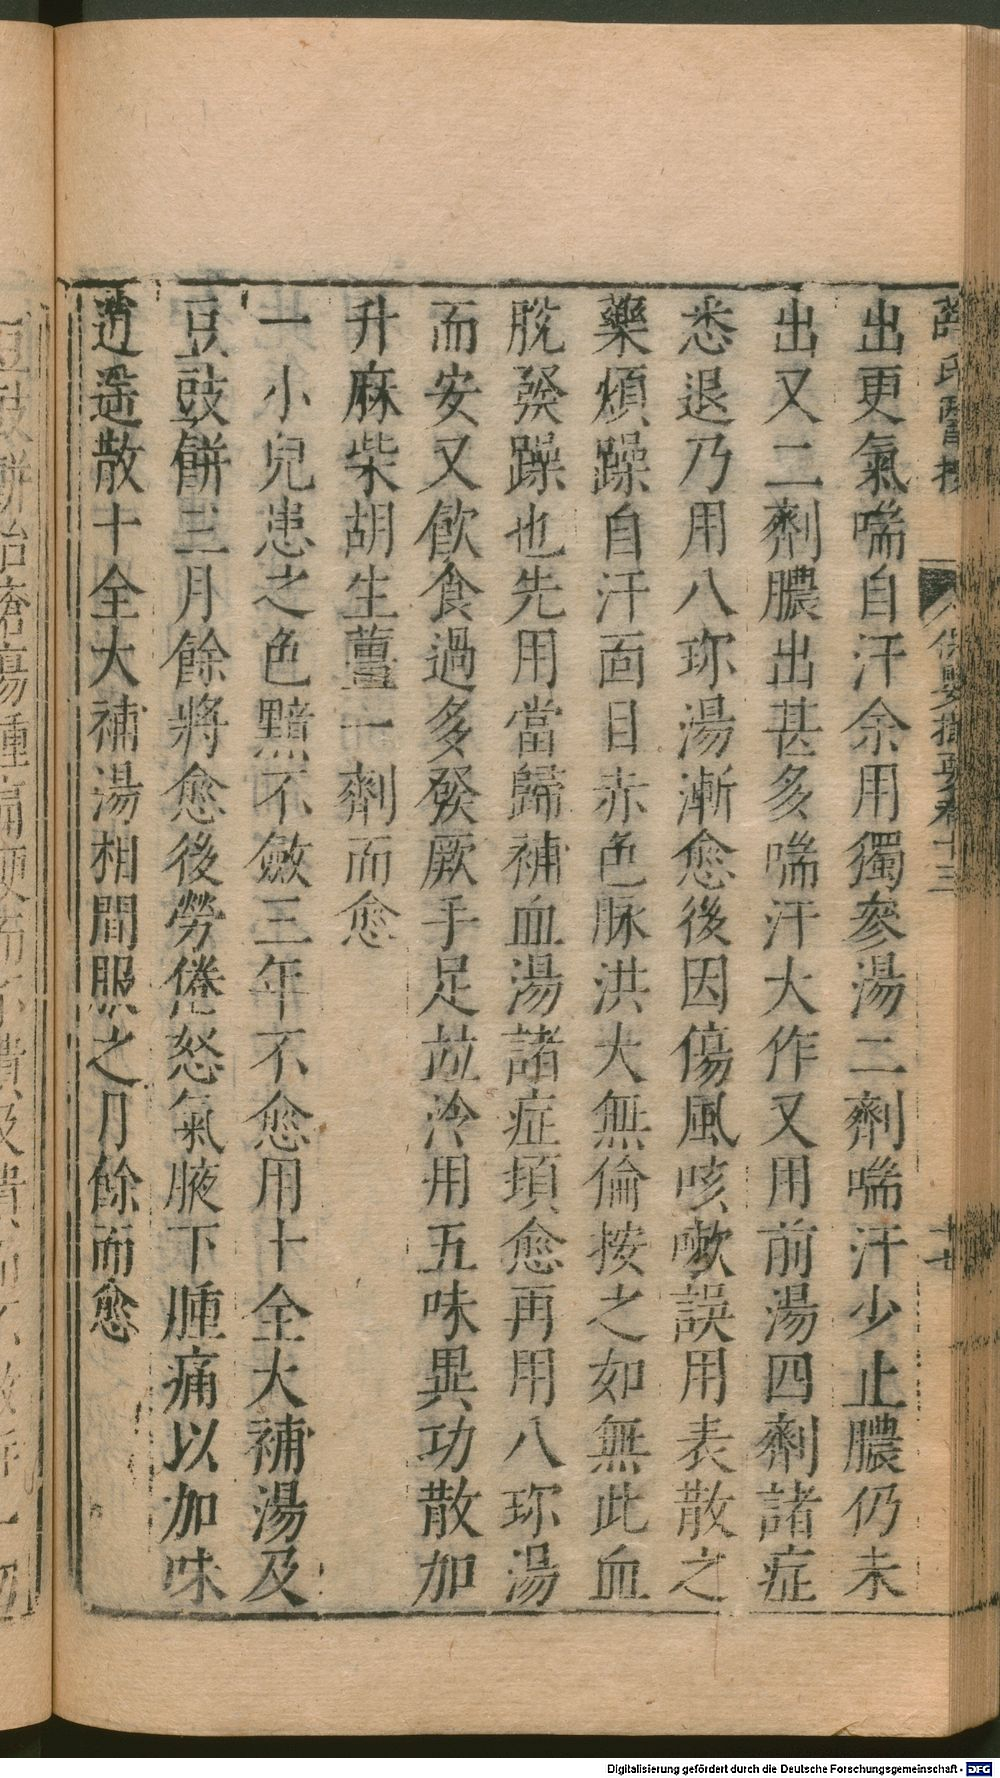 薛氏醫按 保嬰撮要卷十三 十七
出更氣喘自汗余用獨參湯二劑喘汗少止膿仍未
出又二劑膿出甚多喘汗大作又用前湯四劑諸症
悉退乃用八珍湯漸愈後因傷風咳嗽誤用表散之
藥煩躁自汗面目赤色脉洪大無倫按之如無此血
脫發躁也先用當歸補血湯諸症頓愈再用八珍湯
而安又飲食過多發厥手足並冷用五味異功散加
升麻柴胡生薑一劑而愈
一小兒患之色黯不斂三年不愈用十全大補湯及
豆豉餅三月餘將愈後勞倦怒氣腋下腫痛以加味
逍遥散十全大補湯相間服之月餘而愈
豆豉餅治瘡瘍腫痛硬而不潰及潰而不斂
Digitalisierung gefördert durch die Deutsche Forschungsgemeinschaft - DFG